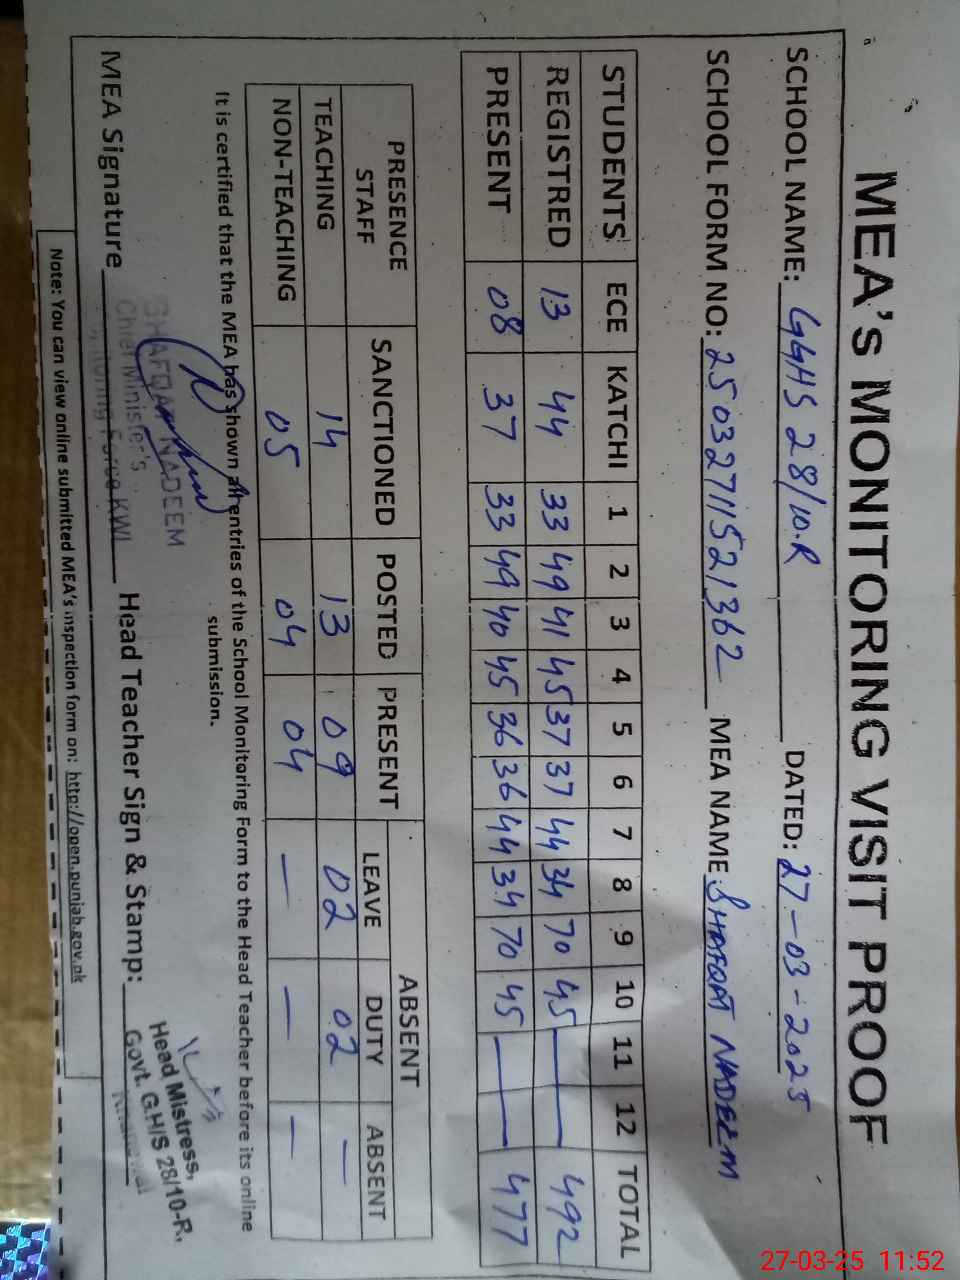 MEA'S MONITORING VISIT PROOF
SCHOOL NAME: GGHS 28/10.R DATED: 27-03-2025
SCHOOL FORM NO: 25032711521362 MEA NAME: SHAFQAT NADEEM
STUDENTS ECE KATCHI 1 2 3 4 5 6 7 8 9 10 11 12 TOTAL
REGISTRED 13 44 33 49 41 45 37 37 44 34 70 45 — — 492
PRESENT 08 37 33 49 40 45 36 36 44 34 70 45 — — 477
PRESENCE STAFF SANCTIONED POSTED PRESENT ABSENT
LEAVE DUTY ABSENT
TEACHING 14 13 09 02 02 —
NON-TEACHING 05 04 04 — — —
It is certified that the MEA has shown all entries of the School Monitoring Form to the Head Teacher before its online
submission.
MEA Signature Head Teacher Sign & Stamp:
SHAFQAT NADEEM
Chief Minister's
Monitoring Force KWL
Head Mistress,
Govt. G.H/S 28/10-R,
Khanewal
Note: You can view online submitted MEA's inspection form on: http://open.punjab.gov.pk
27-03-25 11:52